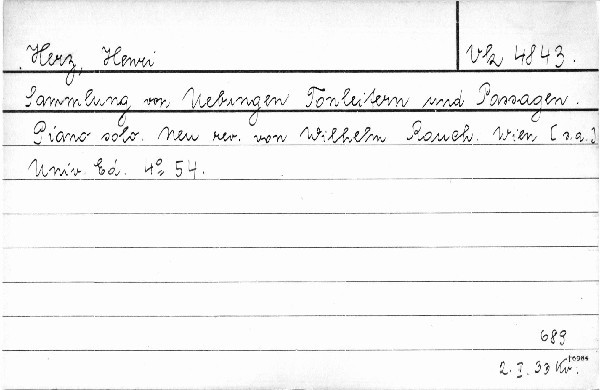 Herz, Henri
Vh 4843.
Sammlung von Uebungen Tonleitern und Passagen.
Piano solo. Neu rev. von Wilhelm Rauch. Wien [s.a.]
Univ. Ed. 4° 54.
689
2. I. 33 Kv.